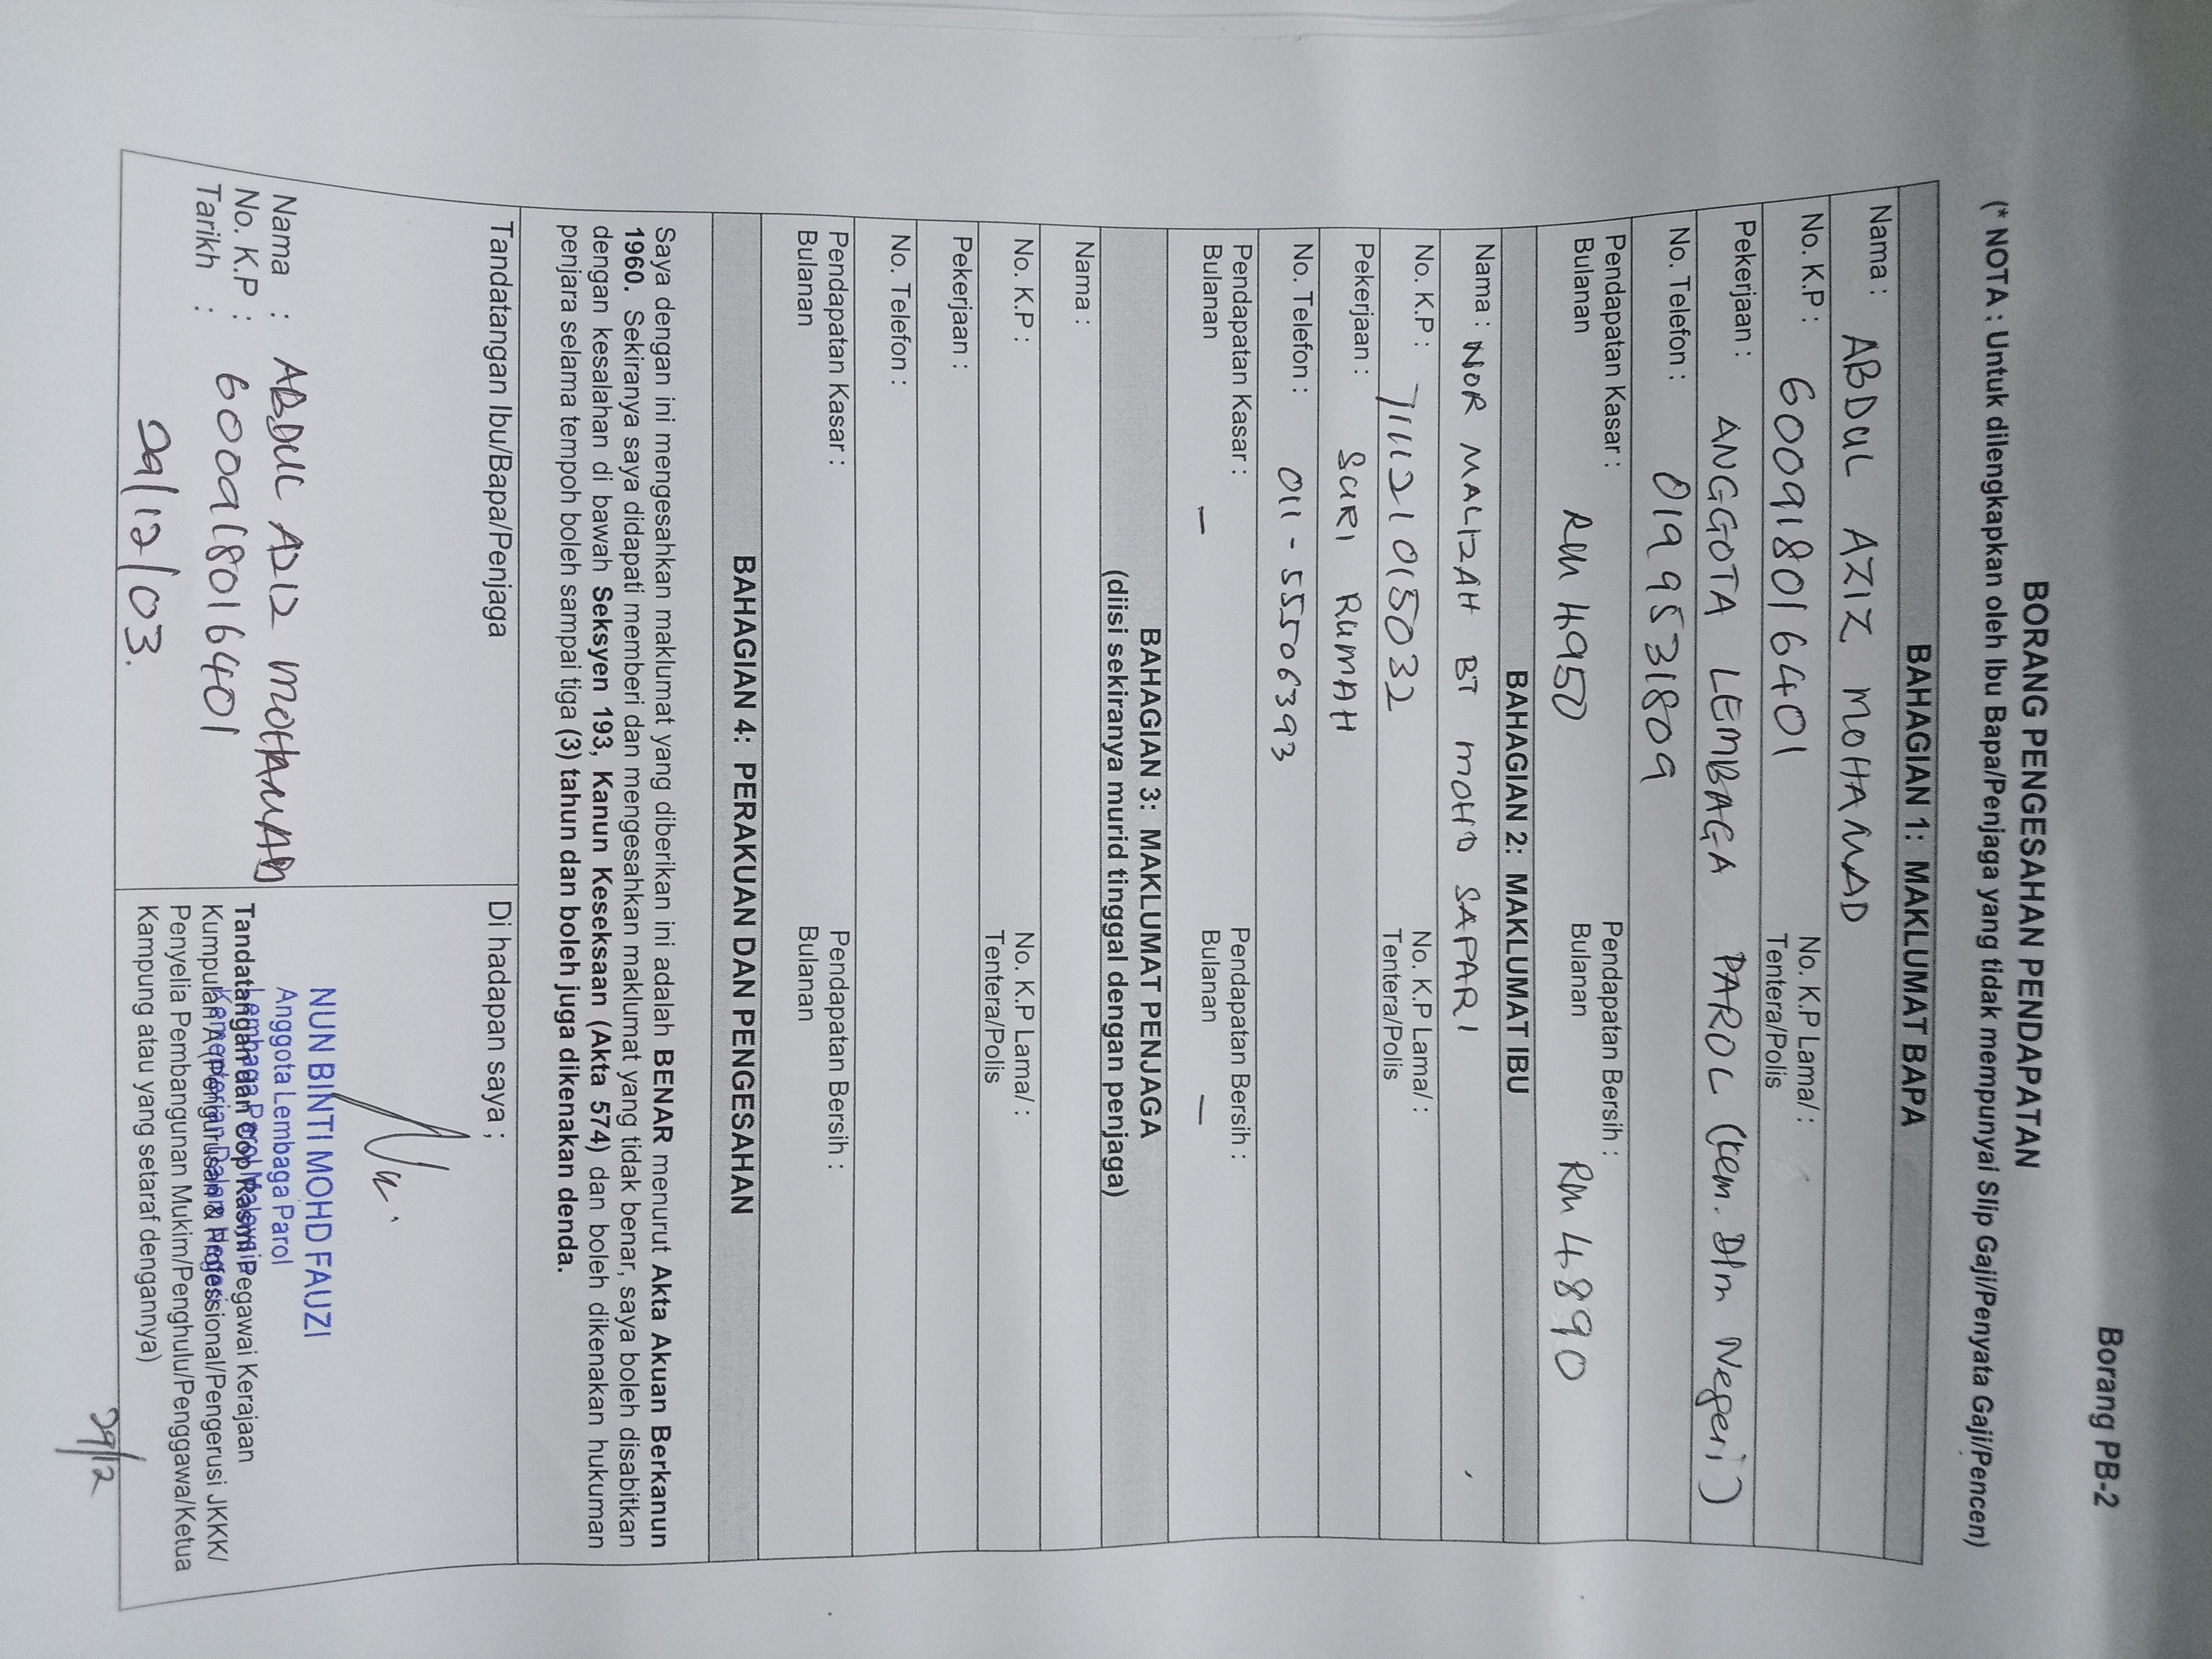 Borang PB-2
BORANG PENGESAHAN PENDAPATAN
(* NOTA : Untuk dilengkapkan oleh Ibu Bapa/Penjaga yang tidak mempunyai Slip Gaji/Penyata Gaji/Pencen)
BAHAGIAN 1: MAKLUMAT BAPA
Nama : ABDUL AZIZ MOHAMAD
No. K.P : 600918016401 No. K.P Lama/ :
Tentera/Polis
Pekerjaan : ANGGOTA LEMBAGA PAROL (Kem. Dlm Negeri)
No. Telefon : 0199531809
Pendapatan Kasar : Pendapatan Bersih :
Bulanan RM 4950 Bulanan RM 4890
BAHAGIAN 2: MAKLUMAT IBU
Nama : NOR MALIZAH BT MOHD SAPARI
No. K.P : 711121015032 No. K.P Lama/ :
Tentera/Polis
Pekerjaan : SURI RUMAH
No. Telefon : 011 - 55506393
Pendapatan Kasar : Pendapatan Bersih :
Bulanan — Bulanan —
BAHAGIAN 3: MAKLUMAT PENJAGA
(diisi sekiranya murid tinggal dengan penjaga)
Nama :
No. K.P : No. K.P Lama/ :
Tentera/Polis
Pekerjaan :
No. Telefon :
Pendapatan Kasar : Pendapatan Bersih :
Bulanan Bulanan
BAHAGIAN 4: PERAKUAN DAN PENGESAHAN
Saya dengan ini mengesahkan maklumat yang diberikan ini adalah BENAR menurut Akta Akuan Berkanun
1960. Sekiranya saya didapati memberi dan mengesahkan maklumat yang tidak benar, saya boleh disabitkan
dengan kesalahan di bawah Seksyen 193, Kanun Keseksaan (Akta 574) dan boleh dikenakan hukuman
penjara selama tempoh boleh sampai tiga (3) tahun dan boleh juga dikenakan denda.
Tandatangan Ibu/Bapa/Penjaga
Nama : ABDUL AZIZ MOHAMAD
No. K.P : 600918016401
Tarikh :
29/12/03.
Di hadapan saya ;
NUN BINTI MOHD FAUZI
Anggota Lembaga Parol
Lembaga Parol Malaysia
Kementerian Dalam Negeri
Tandatangan dan Cop Rasmi Pegawai Kerajaan
Kumpulan A (Pengurusan & Professional/Pengerusi JKKK/
Penyelia Pembangunan Mukim/Penghulu/Penggawa/Ketua
Kampung atau yang setaraf dengannya)
29/12